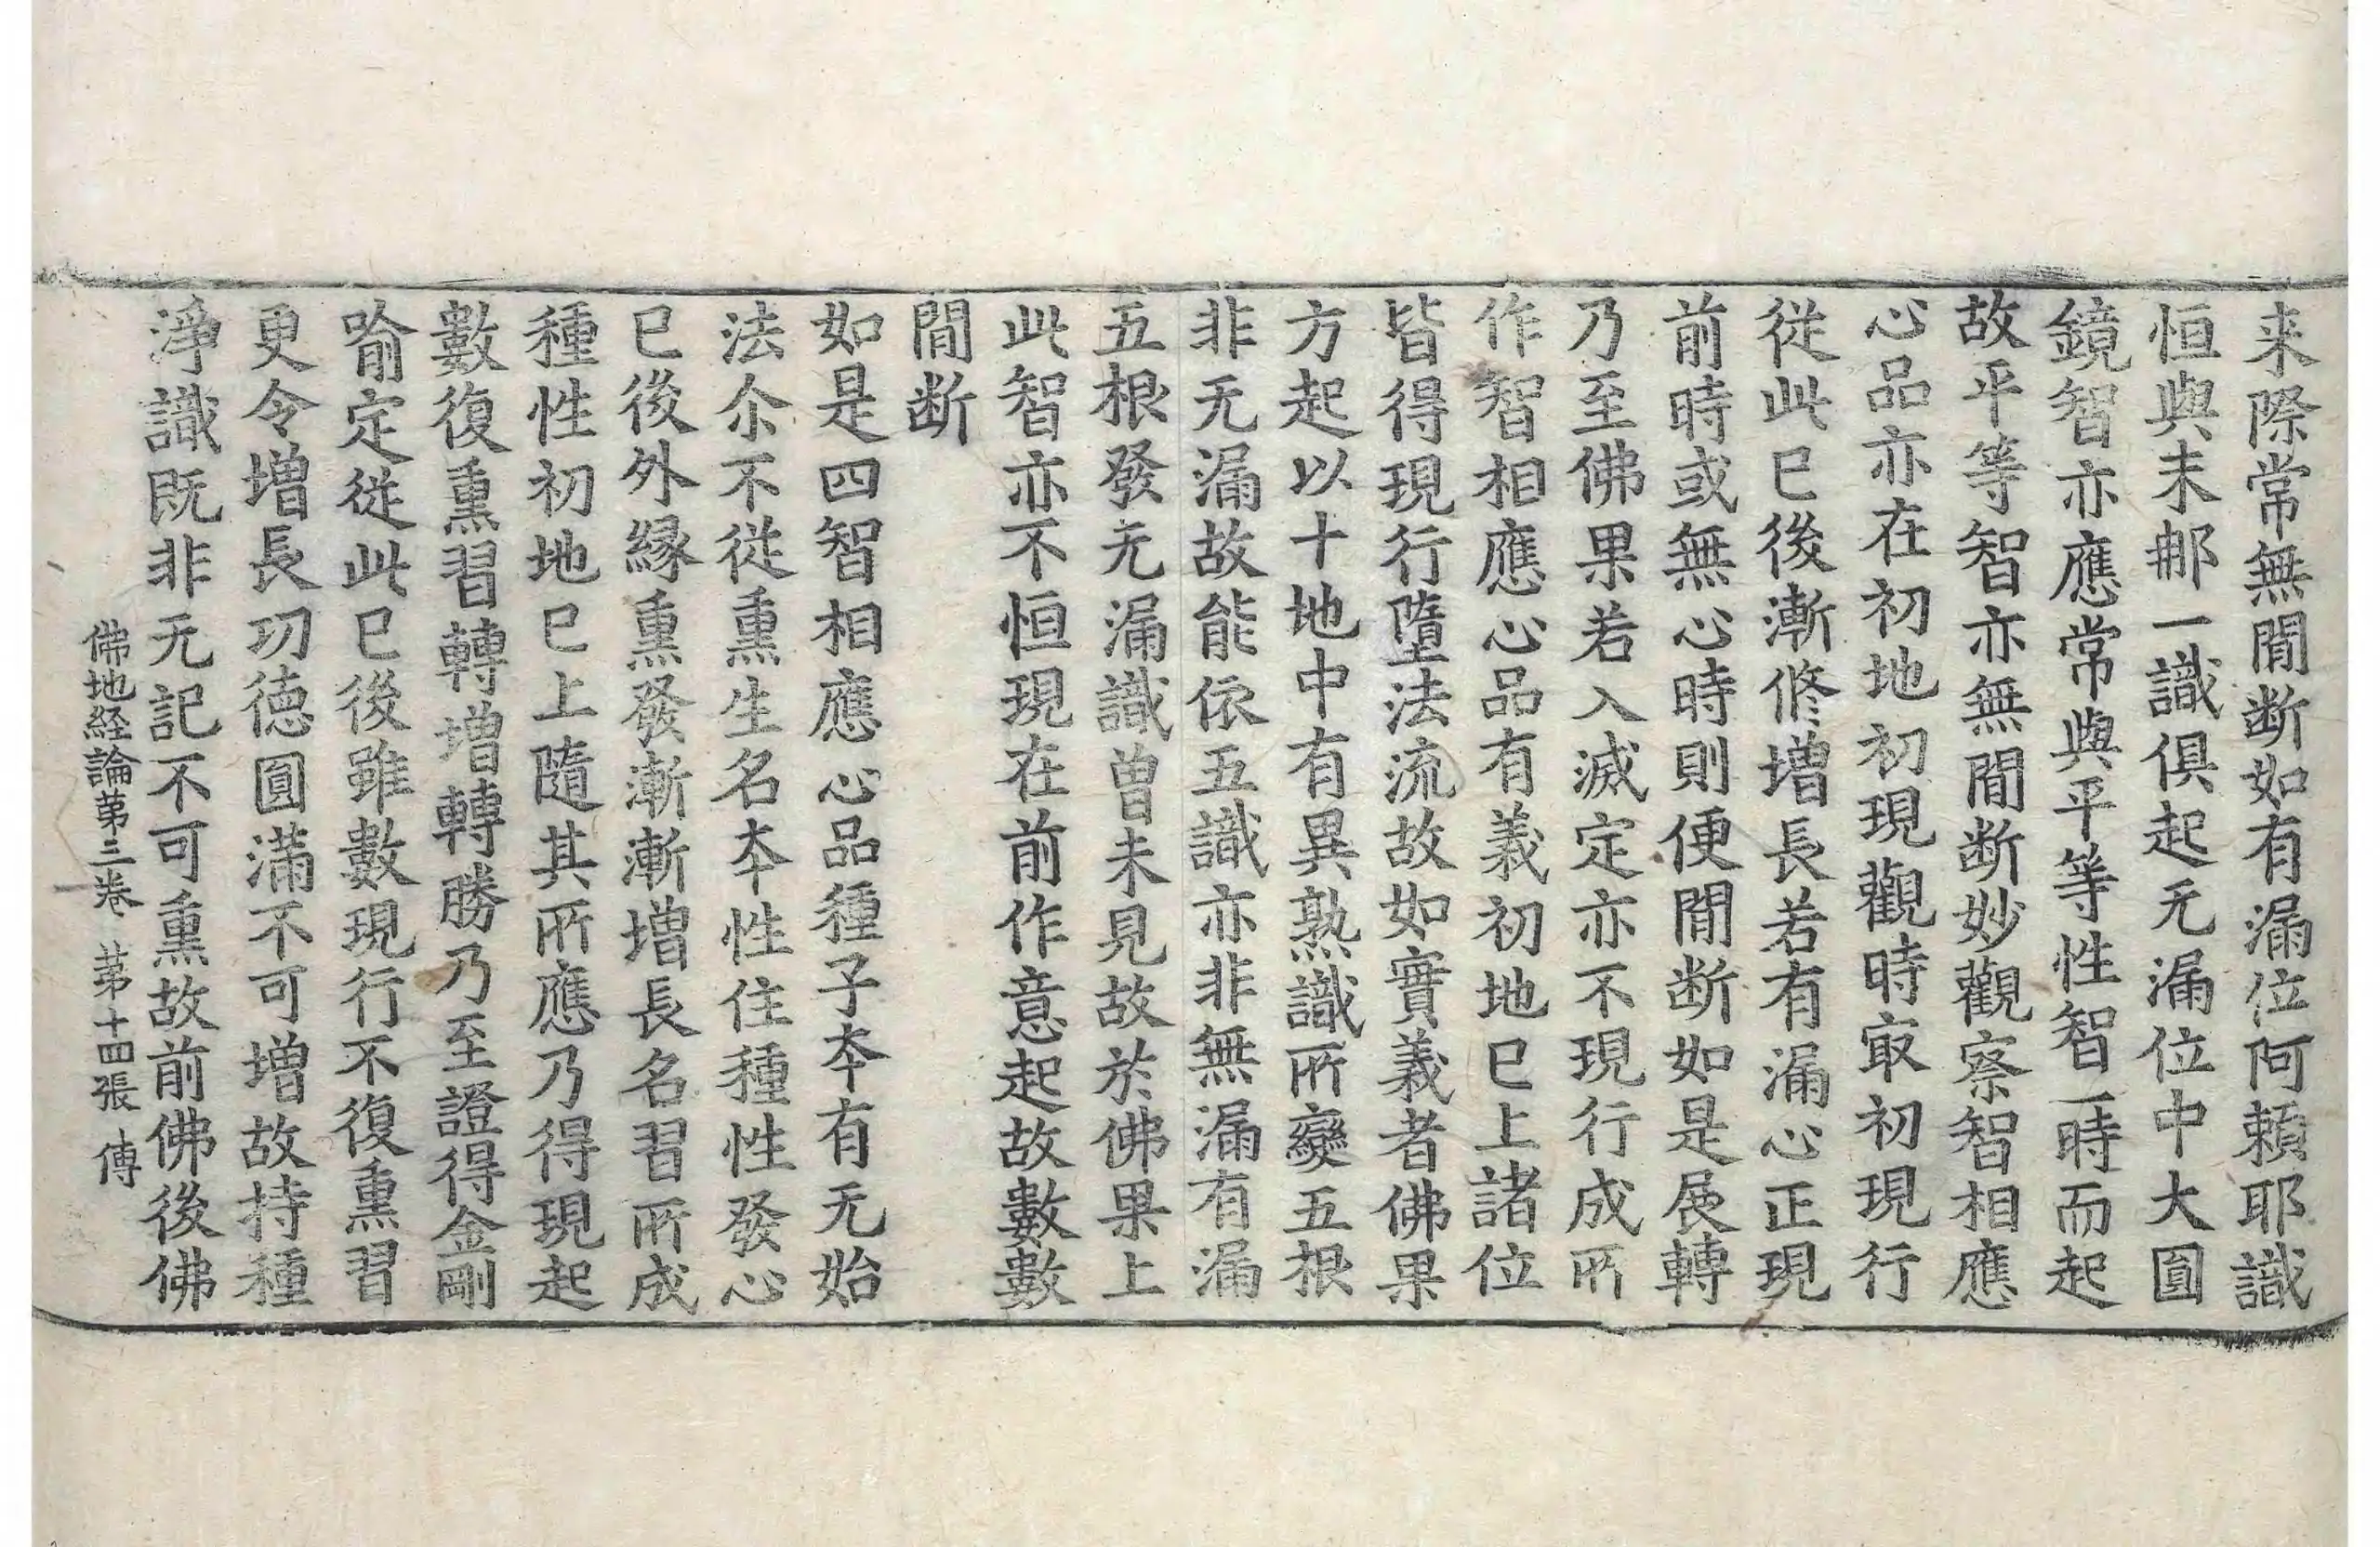 来際常無閒断如有漏位阿頼耶識
恒與末那一識俱起无漏位中大圓
鏡智亦應常與平等性智一時而起
故平等智亦無閒断妙觀察智相應
心品亦在初地初現觀時㝡初現行
従此已後漸修增長若有漏心正現
前時或無心時則便閒断如是展轉
乃至佛果若入滅定亦不現行成所
作智相應心品有義初地已上諸位
皆得現行墮法流故如實義者佛果
方起以十地中有異熟識所變五根
非无漏故能依五識亦非無漏有漏
五根發无漏識曾未見故於佛果上
此智亦不恒現在前作意起故數數
閒断
如是四智相應心品種子夲有无始
法尒不従熏生名夲性住種性發心
已後外緣熏發漸漸增長名習所成
種性初地已上隨其所應乃得現起
數復熏習轉增轉勝乃至證得金剛
喻定従此已後雖數現行不復熏習
更令增長功德圓滿不可增故持種
淨識既非无記不可熏故前佛後佛
佛地経論苐三卷 苐十四張 傅